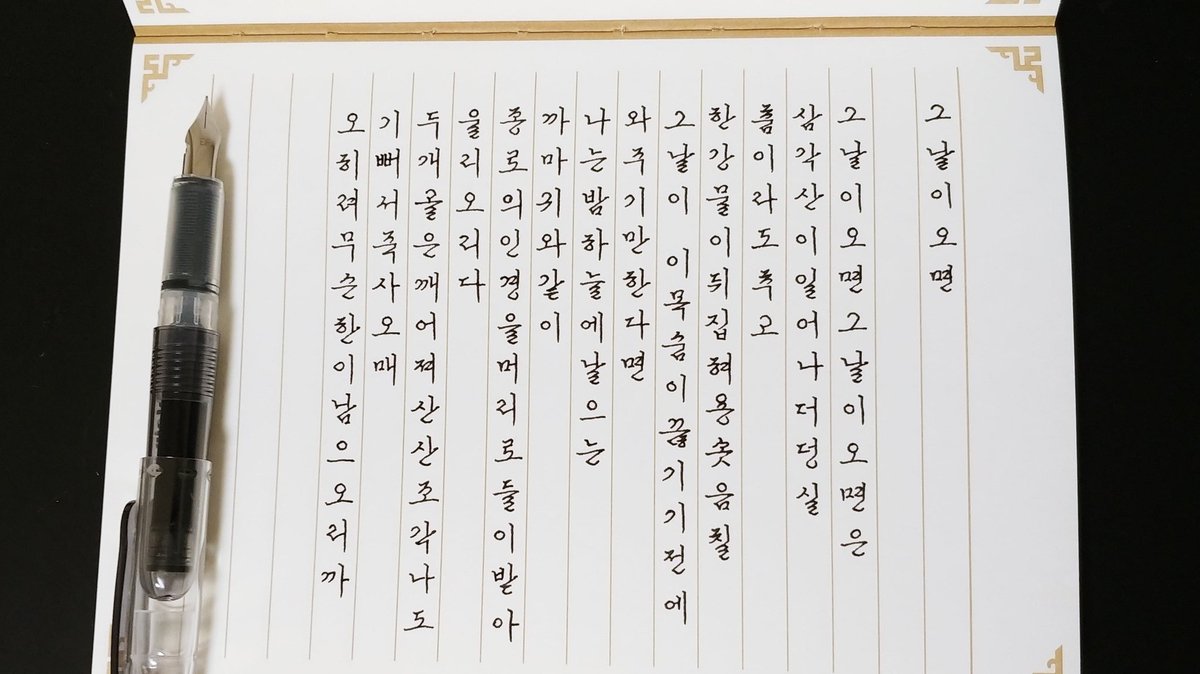 그날이오면
그날이오면그날이오면은
삼각산이일어나더덩실
춤이라도추고
한강물이뒤집혀용솟음칠
그날이 이목숨이끊기기전에
와주기만한다면
나는밤하늘에날으는
까마귀와같이
종로의인경을머리로들이받아
울리오리다
두개골은깨어져산산조각나도
기뻐서죽사오매
오히려무슨한이남으오리까